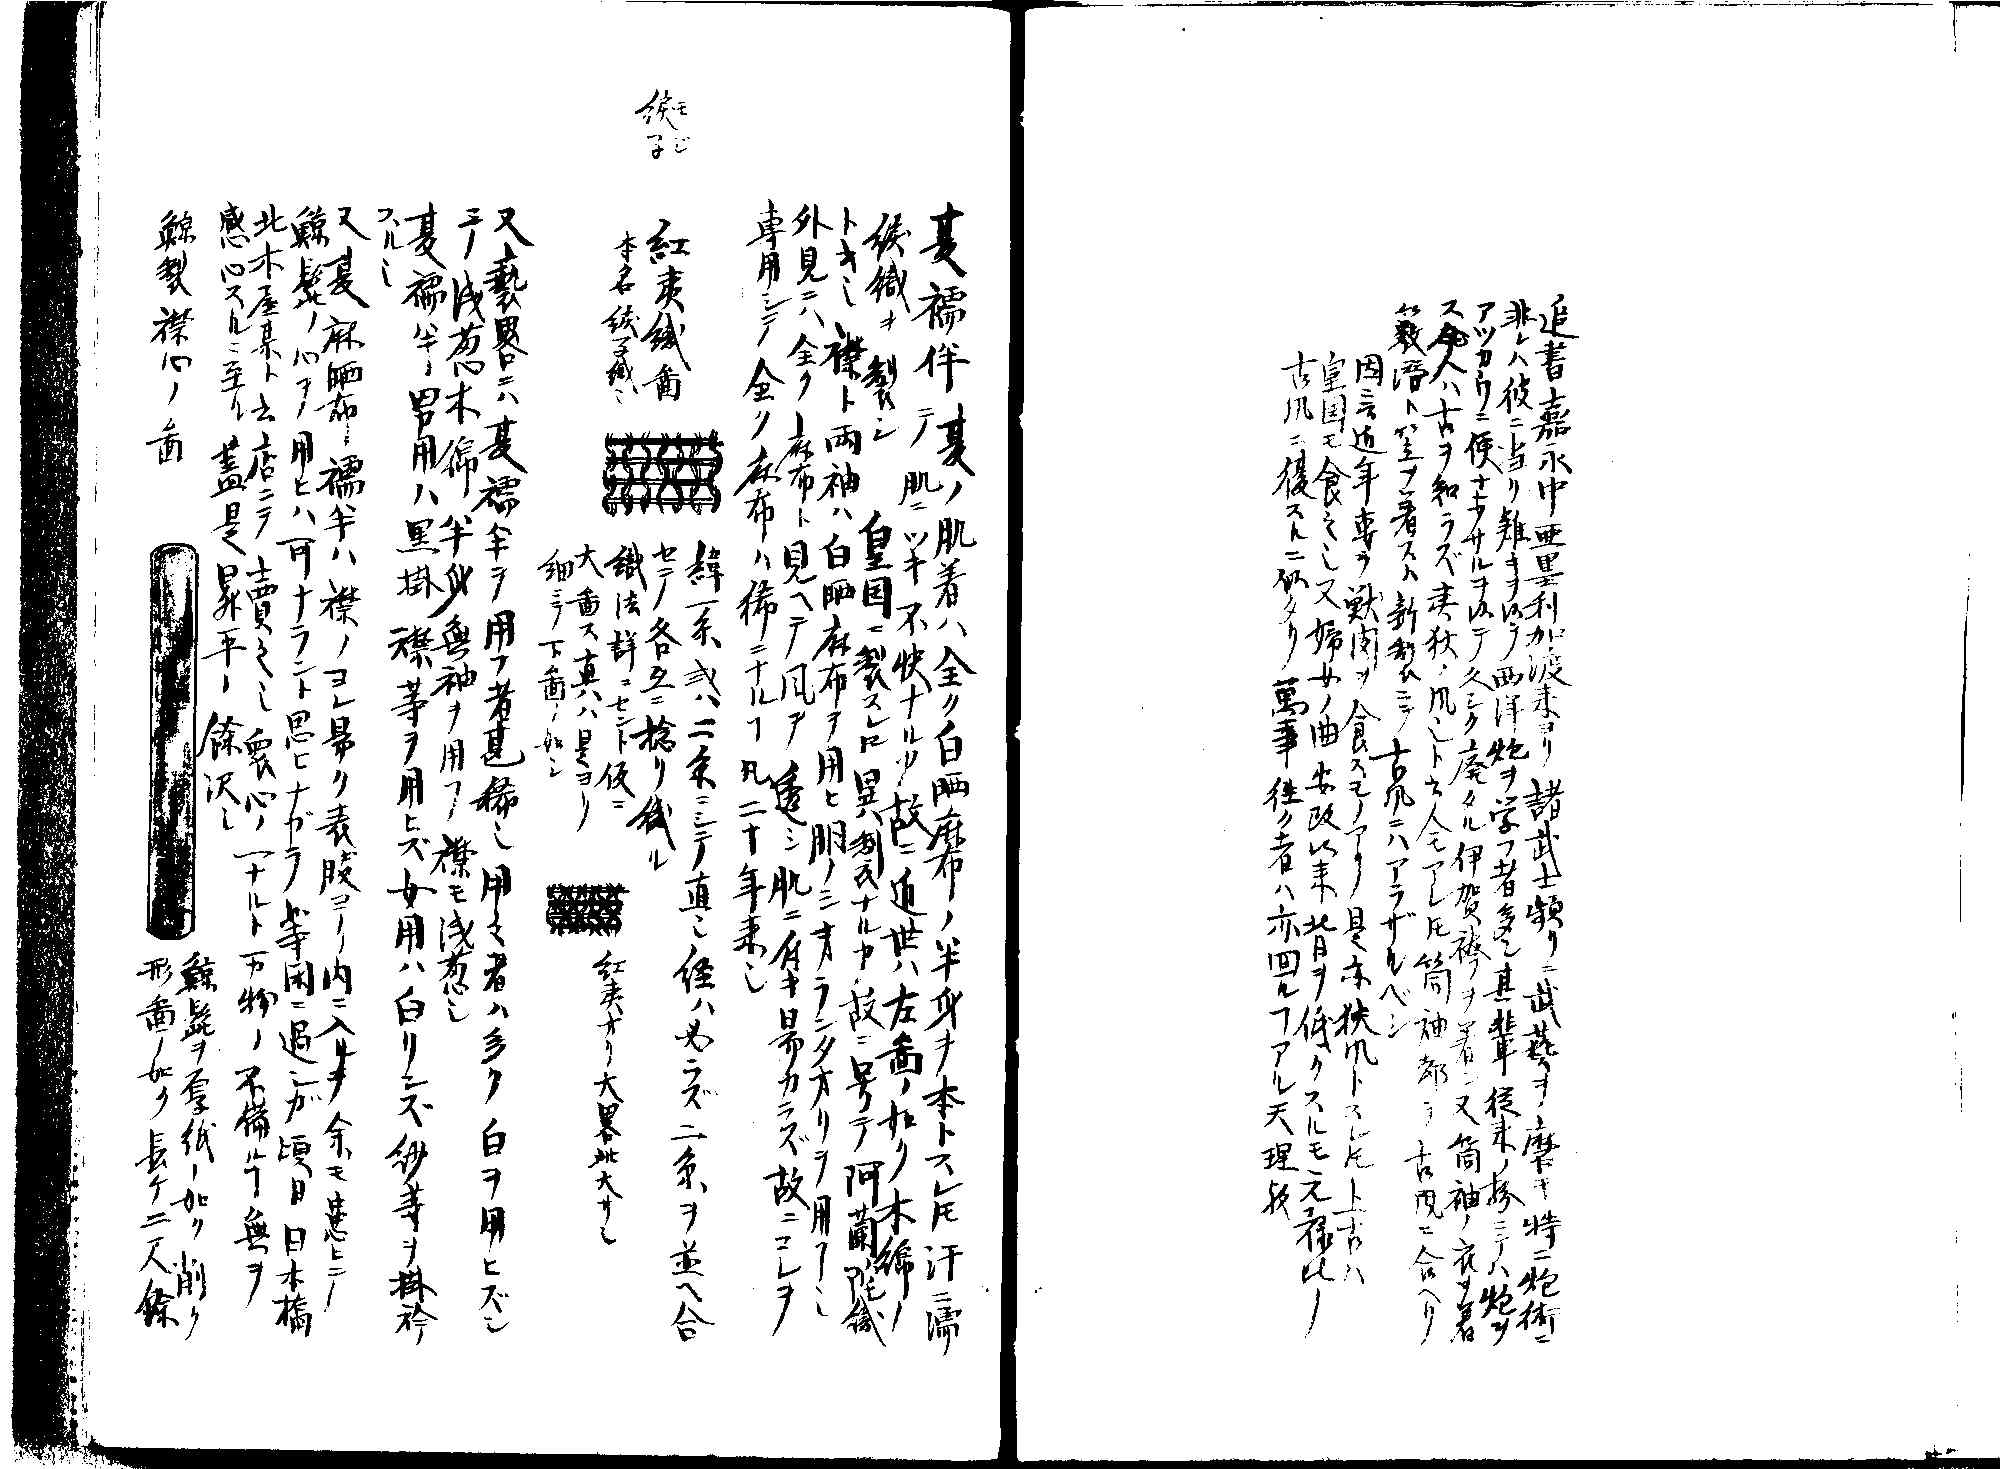 追書嘉永中亜墨利加渡来ヨリ諸武士頻リニ武藝ヲ磨キ特ニ炮術ニ
非レハ彼ニ当リ難キヲ以テ西洋炮ヲ学フ者多シ其輩従来ノ袴ニテハ炮ヲ
アツカウニ便ナラサルヲ以テ久シク廃タル伊賀袴ヲ着シ又筒袖ノ衣ヲ着
ス人ハ古ヲ知ラズ夷狄ノ風也ト云人モアレ𪜈筒袖都テ古風ニ合ヘリ
簑ト笠ヲ着スハ新製ニテ古風ニハアラザルベシ
因云近年専ラ獣肉ヲ食スモノアリ是亦狄風トスレ𪜈上古ハ
皇国モ食之シ又婦女ノ曲 安政以来背ヲ低クスルモ元禄此ノ
古風ニ復スルニ似タリ萬事往ク者ハ亦回ルヿアル天理歟
夏襦伴 夏ノ肌着ハ全ク白晒麻布ノ半身ヲ本トスレ𪜈汗ニ濡
テ肌ニツキ不快ナル少故ニ近世ハ左啚ノ如ク木綿ノ
綟織ヲ製シ 皇国ニ製スレ𪜈異ハ制式ナルカ故ニ号テ阿蘭陀織
ト云也襟ト両袖ハ白晒麻布ヲ用ヒ胴ノミオランダオリヲ用フ也
外見ニハ全ク麻布ト見ヘテ風ヲ透シ肌ニ付キ昜カラズ故ニコレヲ
専用シテ全ク麻布ハ稀ニナルヿ凡二十年来也
綟モ
子ジ
紅夷織啚
本名綟子織也
緯一糸或ハ二糸ニシテ直也経ハ必ラズ二糸ヲ並ヘ合
セテ各互ニ捻リ織ル
織法詳ニセント仮ニ
大啚ス真ハ是ヨリ
細ニテ下啚ノ如シ
紅夷オリ大畧此大サ也
又藝畧ニハ夏襦伴ヲ用フ者甚稀也用之者ハ多ク白ヲ用ヒズシ
テ浅葱木綿ノ半身無袖ヲ用フ襟モ浅葱也
夏襦半男用ハ黒掛襟等ヲ用ヒズ女用ハ白リンズ紗等ヲ掛衿
スル也
又夏麻晒布ノ襦半ハ襟ノヨレ昜ク表腋ヨリノ内ニ入𪜈ヲ余モ患ヒテ
鯨髭ノ心ヲ用ヒハ可ナラント思ヒナガラ等閑ニ過シガ頃日日本橋
北木屋某ト云店ニテ賣之也衆心ノ一ナルト万物ノ不備ルヿ無ヲ
感心スルニ至ル蓋是昇平ノ餘沢也
鯨製襟心ノ啚
鯨髭ヲ厚紙ノ如ク削リ
形啚ノ如ク長ケ二尺餘